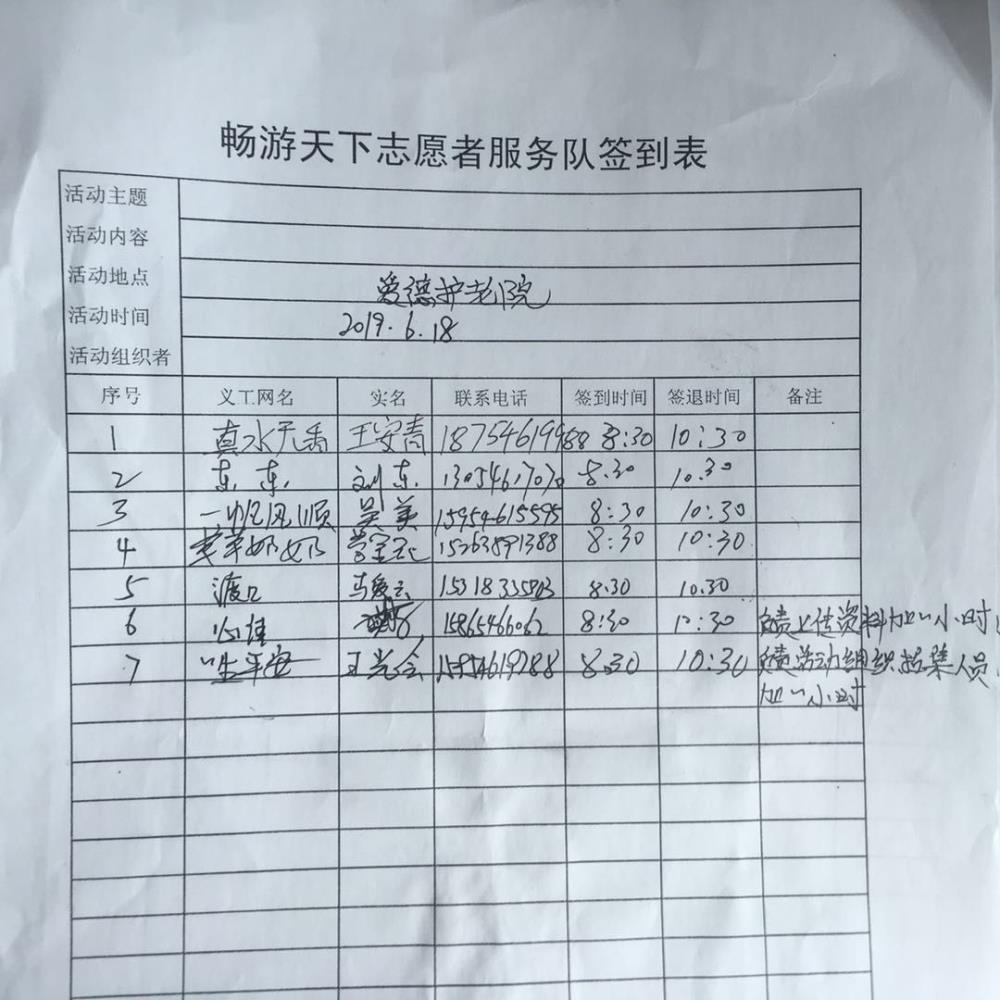 畅游天下志愿者服务队签到表
活动主题
活动内容
活动地点 爱德护老院
活动时间 2019.6.18
活动组织者
序号 义工网名 实名 联系电话 签到时间 签退时间 备注
1 真水无香 王安青 18754619988 8:30 10:30
2 东东 刘东 13054617070 8.30 10.30
3 一帆风顺 吴美 15954615595 8:30 10:30
4 奶奶 15263891388 8:30 10:30
5 渡口 马爱云 15318335803 8.30 10.30
6 心佳 15865466062 8:30 10:30 负责上传资料加一小时
7 一生平安 王光会 15954619288 8.30 10:30 负责活动组织招集人员
加一小时